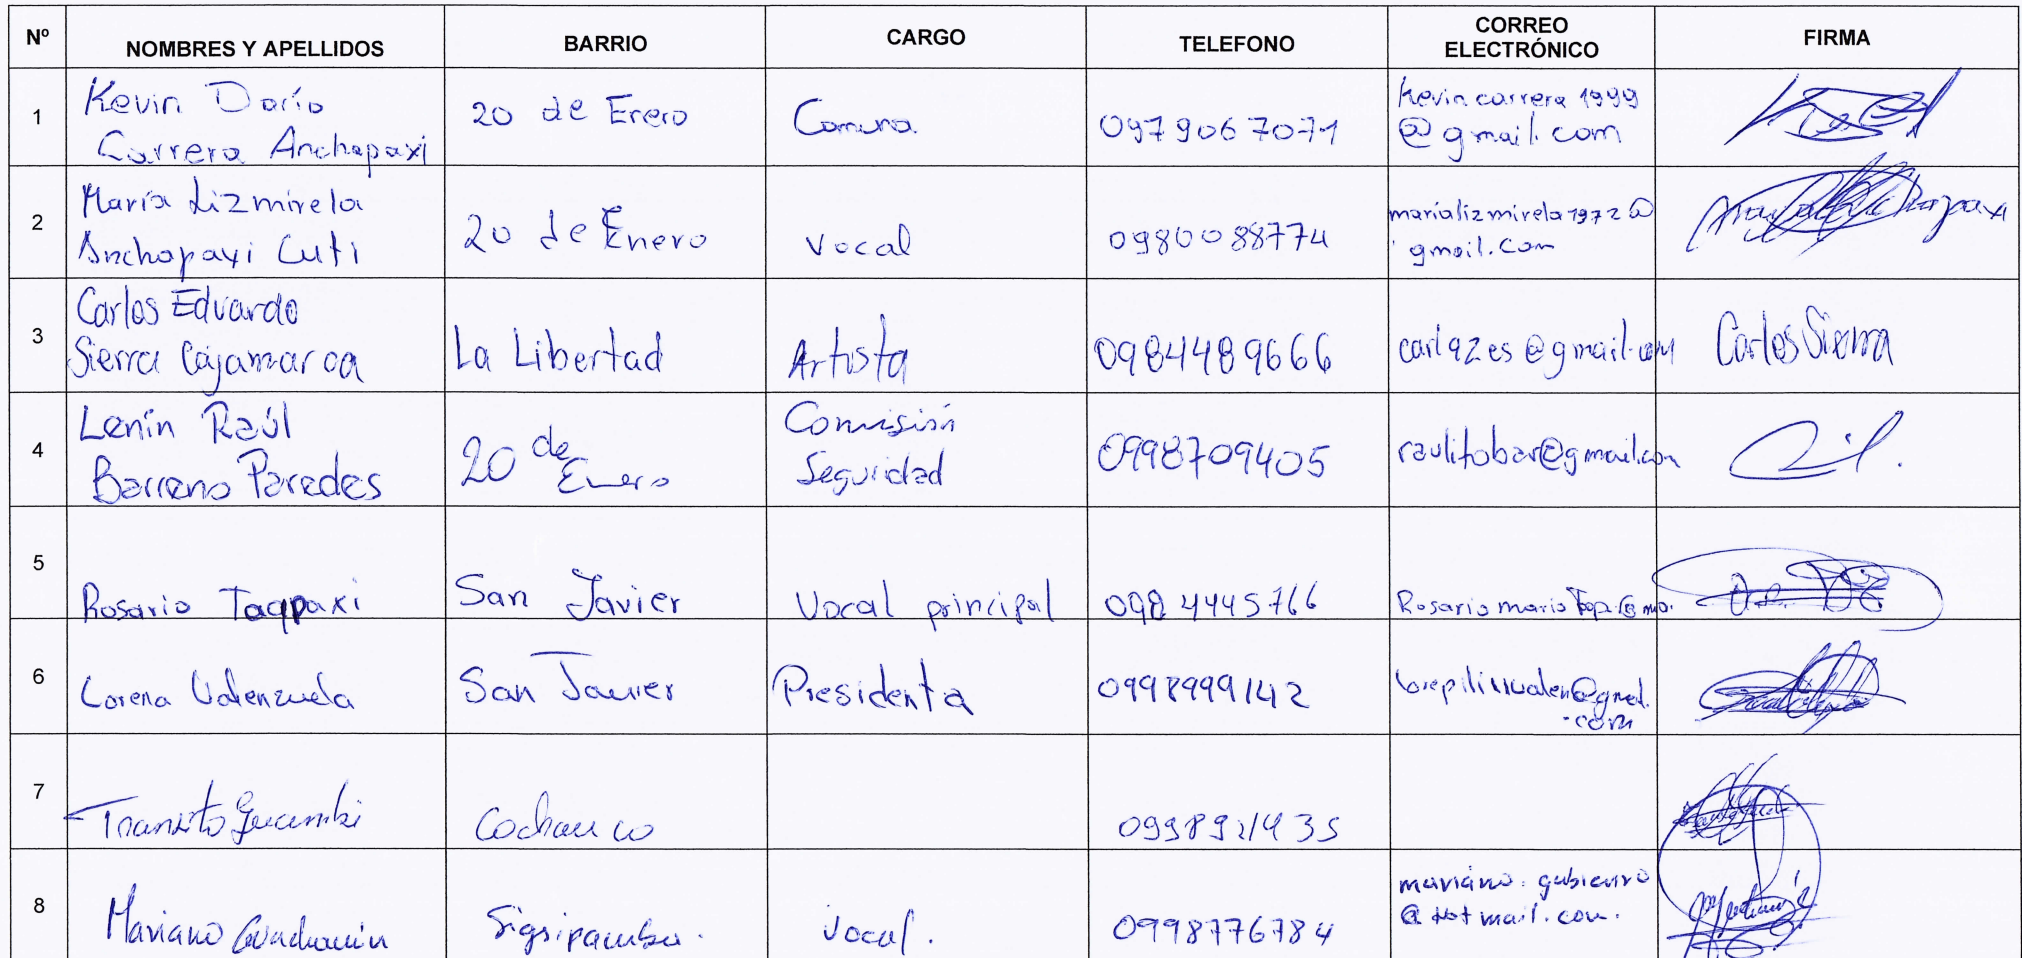 Nº NOMBRES Y APELLIDOS BARRIO CARGO TELEFONO CORREO ELECTRÓNICO FIRMA
1 Kevin Darío Carrera Anchapaxi 20 de Enero Comuna. 0979067071 Kevin carrera 1999 @gmail.com
2 María Lizmirela Anchapaxi Cuti 20 de Enero Vocal 0980088774 marializmirela1972@ gmail.com
3 Carlos Eduardo Sierra Cajamarca La Libertad Artista 0984489666 carlqzes@gmail.com Carlos Sierra
4 Lenín Raúl Barreno Paredes 20 de Enero Comisión Seguridad 0998709405 raulitobar@gmail.com
5 Rosario Taqpaxi San Javier Vocal principal 0984445766
6 Lorena Valenzuela San Javier Presidenta 0998999142
7 Transito
8 Mariano Sigsipamba. Vocal. 0998776784 @Hotmail.com.